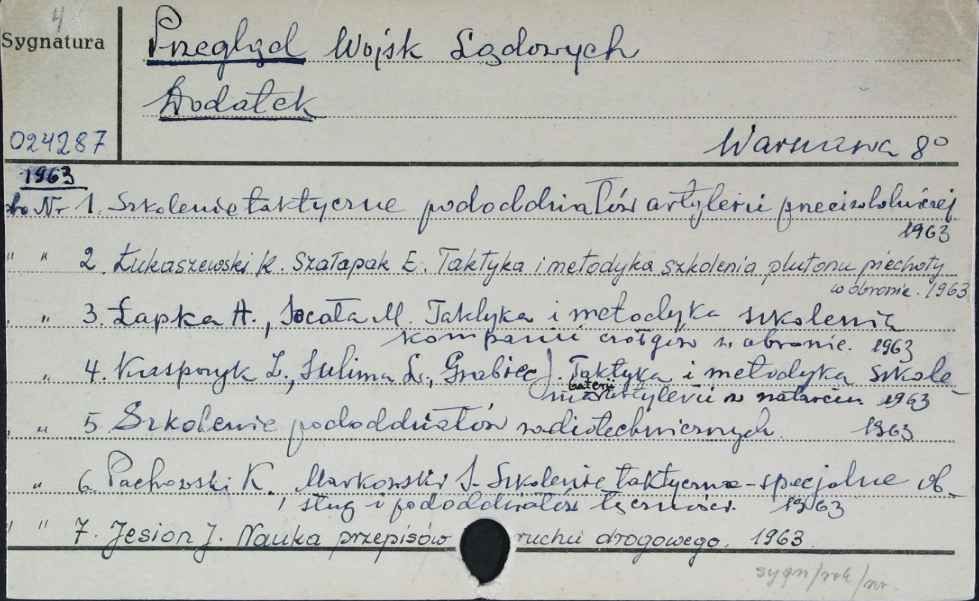 4
Sygnatura
Przegląd Wojsk Lądowych
Dodatek
024287
Warszawa 8°
1963
do Nr 1. Szkolenie taktyczne pododdziałów artylerii przeciwlotniczej
1963
" " 2. Łukaszewski K. Szałapak E. Taktyka i metodyka szkolenia plutonu piechoty
w obronie. 1963
" " 3. Łapka A., Socała M. Taktyka i metodyka szkolenia
kompanii czołgów w obronie. 1963
" 4. Kasprzyk Z., Sulima L., Grabiec J. Taktyka i metodyka szkole-
nia baterii artylerii w natarciu 1963
" " 5 Szkolenie pododdziałów radiotechnicznych. 1963
" 6. Pachowski K., Markowski J. Szkolenie taktyczno-specjalne ob-
sług i pododdziałów łączności. 1963
" " 7. Jesion J. Nauka przepisów ruchu drogowego. 1963.
sygn/rok/nr.